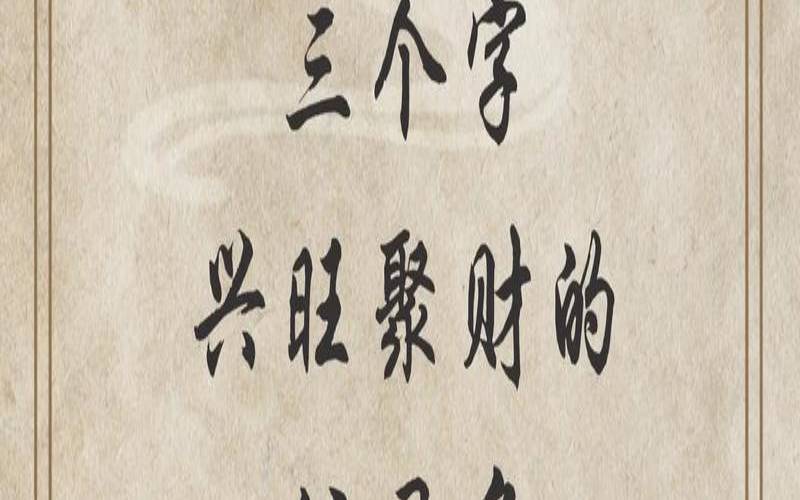 三个字
兴旺聚财的